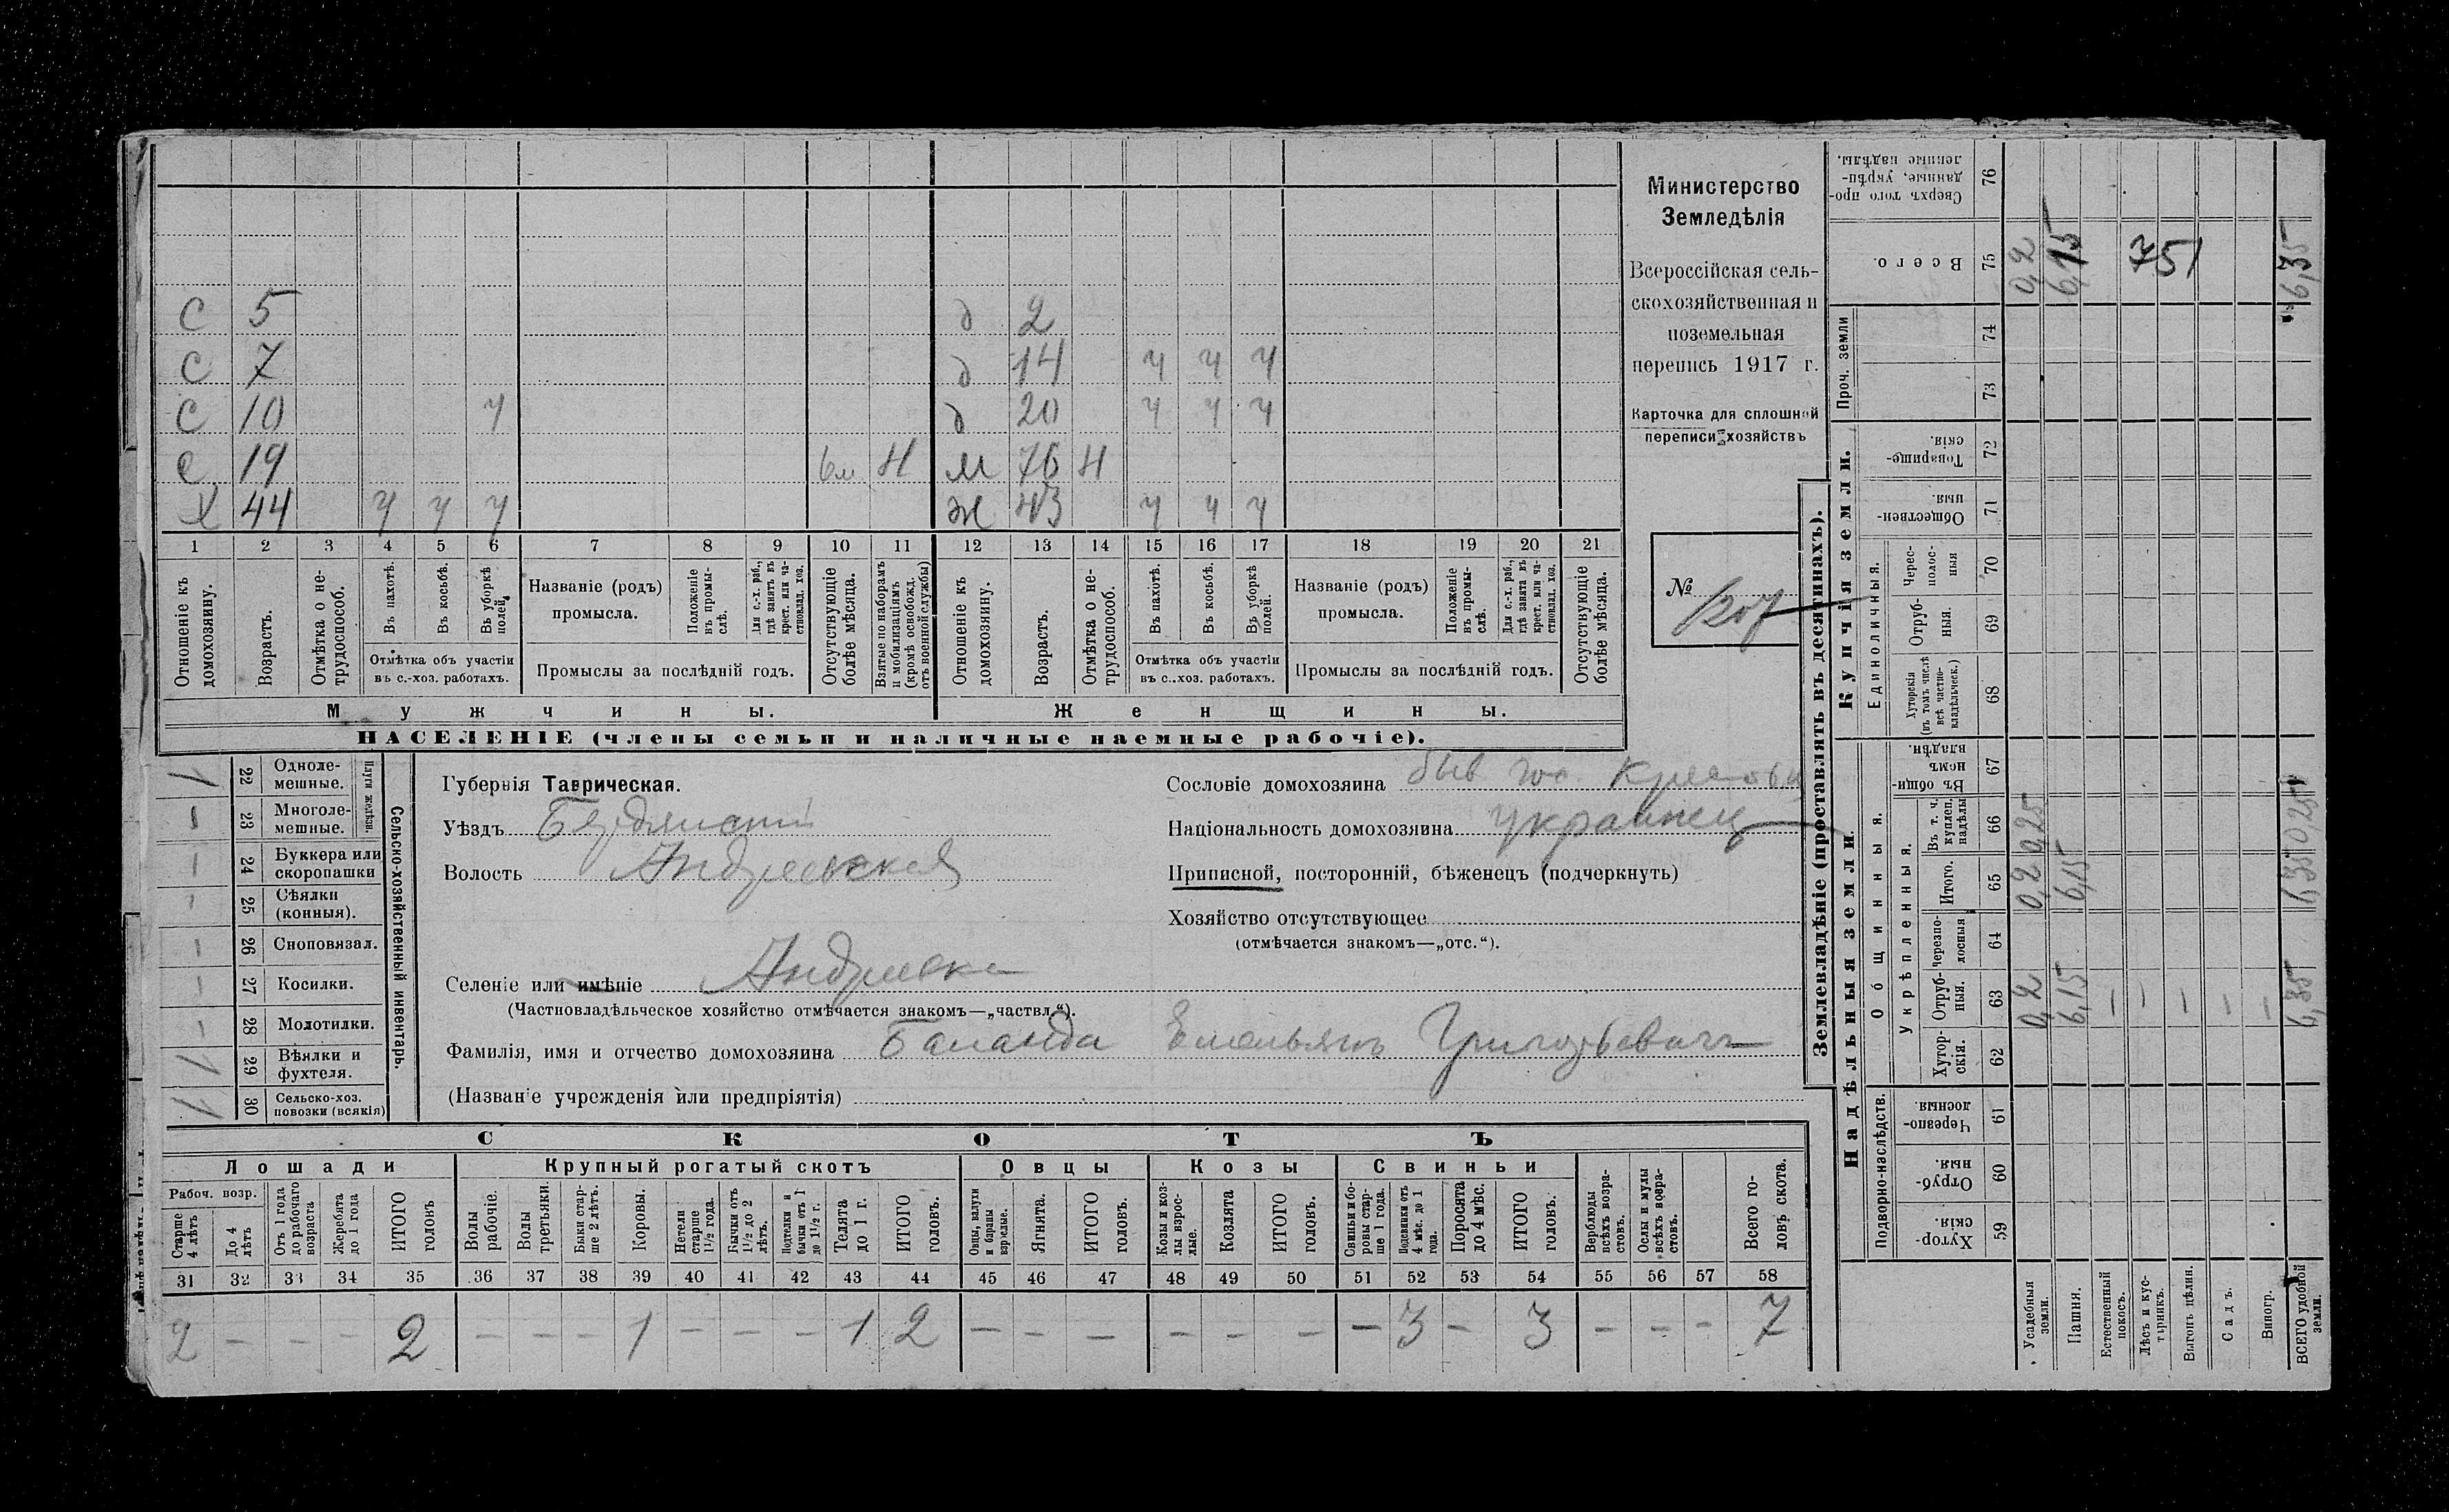 С 5 д 2
С 7 д 14 ч ч ч
С 10 ч д 20 ч ч ч
С 19 6м Н М 76 Н
Х 44 ч ч ч Ж 43 ч ч ч
1 2 3 4 5 6 7 8 9 10 11 12 13 14 15 16 17 18 19 20 21
Отношеніе къ домохозяину.
Возрастъ.
Отмѣтка о не-трудоспособ.
Въ пахотѣ.
Въ косьбѣ.
Въ уборкѣ полей.
Отмѣтка объ участіи
въ с.-хоз. работахъ.
Названіе (родъ)
промысла.
Положеніе въ промы-слѣ.
Для с.-х. раб., гдѣ занятъ въ крест. или ча-стновлад. хоз.
Промыслы за послѣдній годъ.
Отсутствующіе болѣе мѣсяца.
Взятые по наборамъ и мобилизаціямъ (кромѣ освобожд. отъ военной службы)
Отношеніе къ домохозяину.
Возрастъ.
Отмѣтка о не-трудоспособ.
Въ пахотѣ.
Въ косьбѣ.
Въ уборкѣ полей.
Отмѣтка объ участіи
въ с..хоз. работахъ.
Названіе (родъ)
промысла.
Положеніе въ промы-слѣ.
Для с.-х. раб., гдѣ занята въ крест. или ча-стновлад. хоз.
Промыслы за послѣдній годъ.
Отсутствующіе болѣе мѣсяца.
Мужчины. Женщины.
НАСЕЛЕНІЕ (члены семьи и наличные наемные рабочіе).
Министерство
Земледѣлія
Всероссійская сель-
скохозяйственная и
поземельная
перепись 1917 г.
Карточка для сплошной
переписи хозяйствъ
№
1207
22 Одноле-мешные.
23 Многоле-мешные.
Плуги желѣзн.
24 Буккера или скоропашки
25 Сѣялки (конныя).
26 Сноповязал.
27 Косилки.
28 Молотилки.
29 Вѣялки и фухтеля.
30 Сельско-хоз. повозки (всякія)
Сельско-хозяйственный инвентарь.
Губернія Таврическая.
Уѣздъ Бердянскій
Волость Андреевская
Селеніе или имѣніе Андреевка
(Частновладѣльческое хозяйство отмѣчается знакомъ—„частвл.“).
Фамилія, имя и отчество домохозяина Баланда Емельянъ Григорьевичъ
(Названіе учрежденія или предпріятія)
Сословіе домохозяина быв. гос. Крестьян
Національность домохозяина украинец
Приписной, посторонній, бѣженецъ (подчеркнуть)
Хозяйство отсутствующее
(отмѣчается знакомъ—„отс.“).
СКОТЪ
Лошади Крупный рогатый скотъ Овцы Козы Свиньи
Рабоч. возр.
Старше 4 лѣтъ
До 4 лѣтъ
Отъ 1 года до рабочаго возраста
Жеребята до 1 года
ИТОГО головъ
Волы рабочіе.
Волы третьяки.
Быки стар-ше 2 лѣтъ.
Коровы.
Нетели старше 1½ года.
Бычки отъ 1½ до 2 лѣтъ.
Подтелки и бычки отъ 1 до 1½ г.
Телята до 1 г.
ИТОГО головъ.
Овцы, валухи и бараны взрослые.
Ягнята.
ИТОГО головъ.
Козы и коз-лы взрос-лые.
Козлята
ИТОГО головъ.
Свиньи и бо-ровы стар-ше 1 года.
Подсвинки отъ 4 мѣс. до 1 года.
Поросята до 4 мѣс.
ИТОГО головъ.
Верблюды всѣхъ возра-стовъ.
Ослы и мулы всѣхъ возра-стовъ.
Всего го-ловъ скота.
31 32 33 34 35 36 37 38 39 40 41 42 43 44 45 46 47 48 49 50 51 52 53 54 55 56 57 58
2 — — — 2 — — — 1 — — — 1 2 — — — — — — — 3 — 3 — — — 7
Землевладѣніе (проставлять въ десятинахъ).
Надѣльныя земли.
Купчія земли.
Проч. земли
Подворно-наслѣдств.
Общинныя.
Укрѣпленныя.
Единоличныя.
Хутор-скія. 59
Отруб-ныя. 60
Черезпо-лосныя 61
Хутор-скія. 62
Отруб-ныя. 63
Черезпо-лосныя 64
Итого. 65
Въ т. ч. куплен. надѣлы 66
Въ общи-номъ владѣн. 67
Хуторскія (въ томъ числѣ всѣ частно-владѣльческ.) 68
Отруб-ныя. 69
Черес-полос-ныя 70
Обществен-ныя. 71
Товарище-скія. 72
73
74
Всего. 75
Сверхъ того про-данные, укрѣп-ленные надѣлы. 76
Усадебныя земли. 0,2 0,2 0,25 0,2
Пашня. 6,15 6,15 6,15
Естественный покосъ. —
Лѣсъ и кус-тарникъ. — 751
Выгонъ цѣлин. —
Садъ. —
Виногр. —
ВСЕГО удобной земли. 6,35 6,35 0,25 6,35